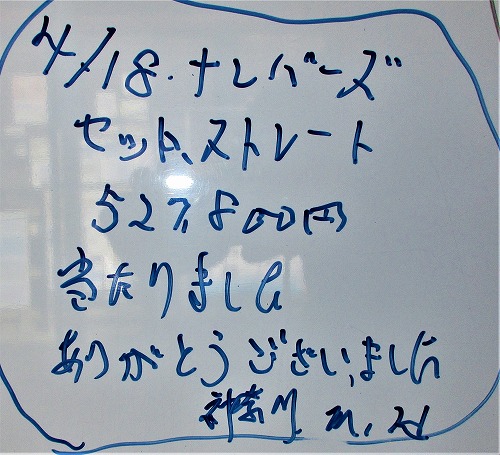 4/18.ナンバーズ
セット、ストレート
527,800円
当たりました
ありがとうございました
神奈川 m.H